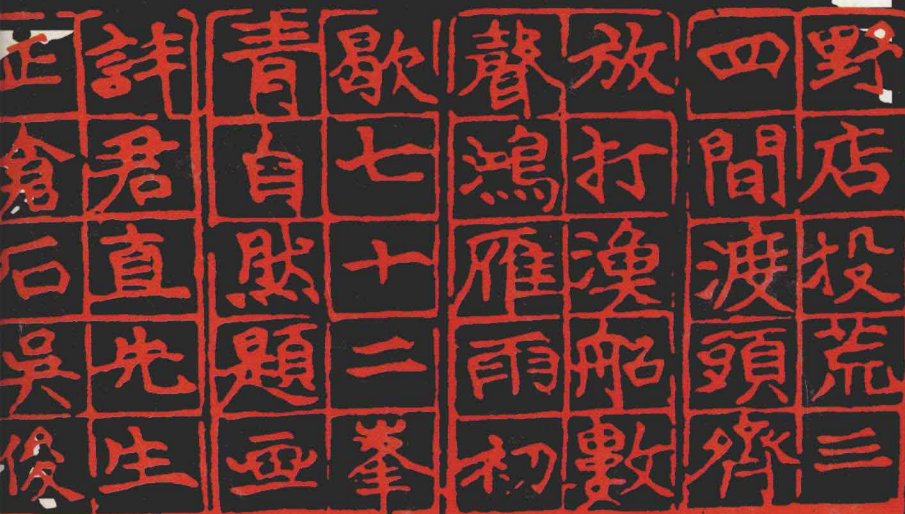 野店投荒三
四間渡頭齊
放打漁船數
聲鴻雁雨初
歇七十二峯
青自然題画
詳君直先生
正倉石吳俊